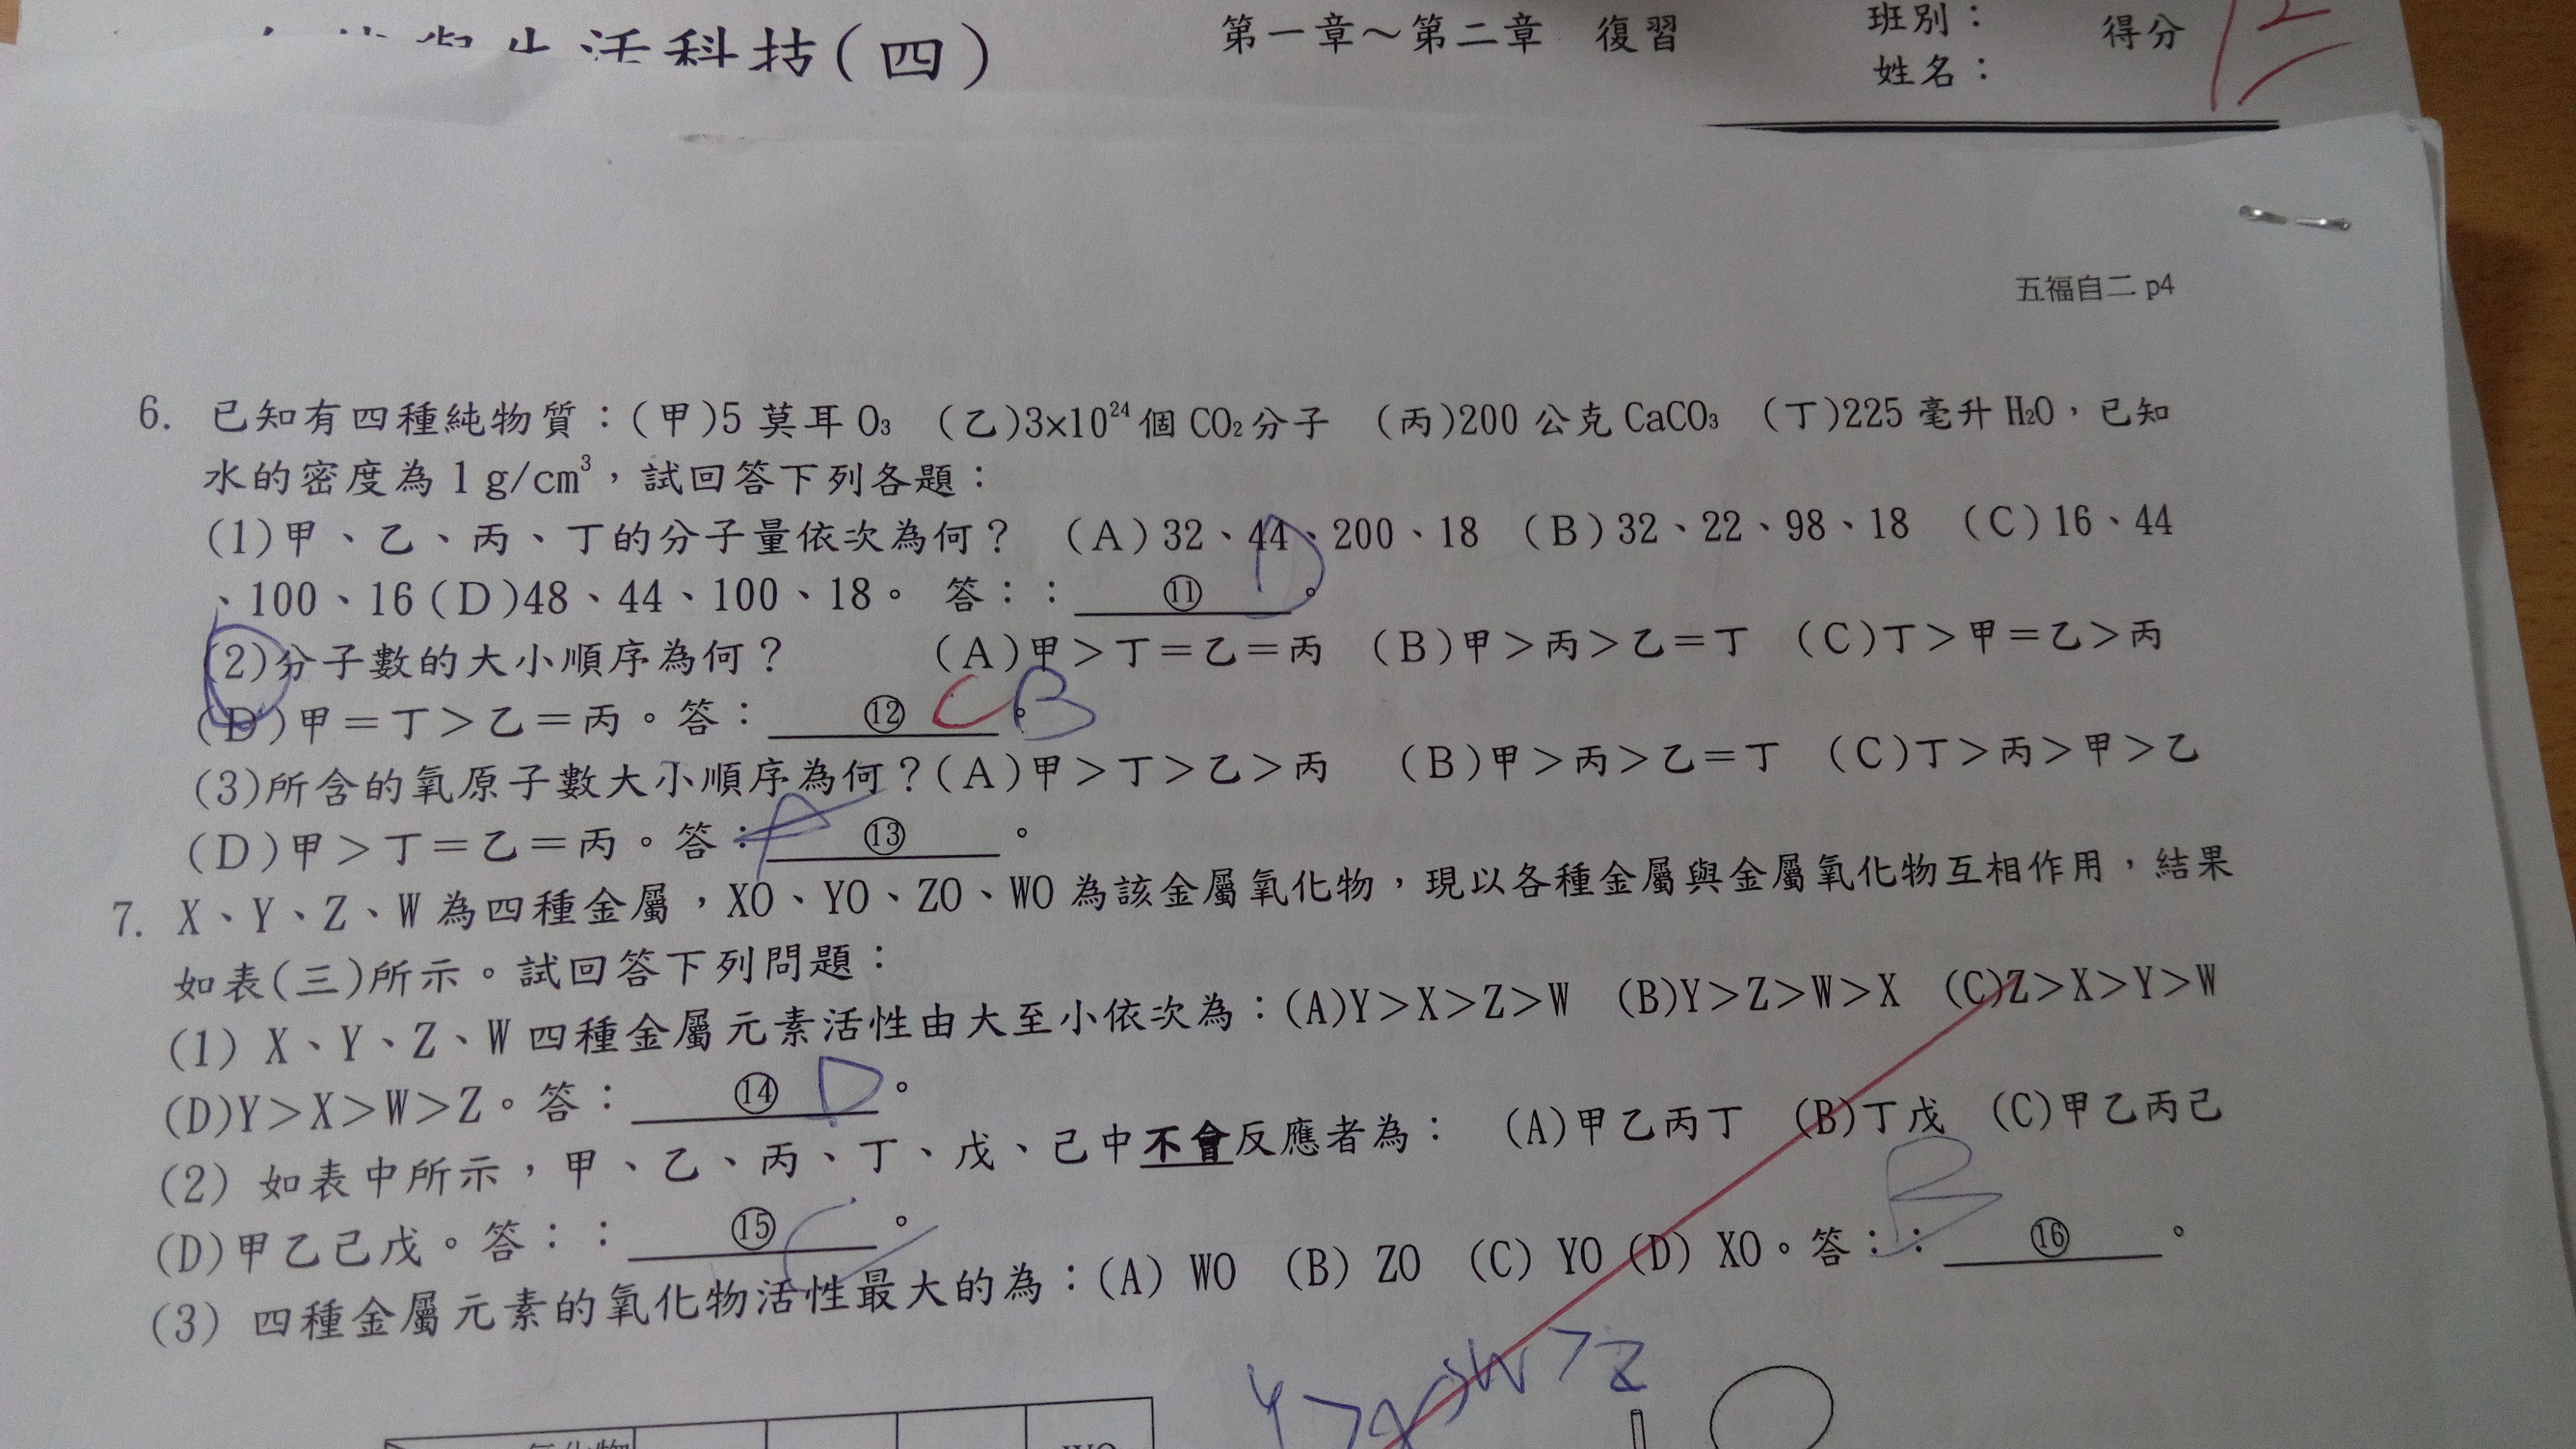 生活科技(四)
第一章～第二章 復習
班別：
得分 12
姓名：
五福自二 p4
6. 已知有四種純物質：(甲)5 莫耳 O₃ (乙)3×10²⁴ 個 CO₂ 分子 (丙)200 公克 CaCO₃ (丁)225 毫升 H₂O，已知
水的密度為 1 g/cm³，試回答下列各題：
(1)甲、乙、丙、丁的分子量依次為何？ (A)32、44、200、18 (B)32、22、98、18 (C)16、44
、100、16 (D)48、44、100、18。 答：： ⑪ D 。
(2)分子數的大小順序為何？ (A)甲＞丁＝乙＝丙 (B)甲＞丙＞乙＝丁 (C)丁＞甲＝乙＞丙
(D)甲＝丁＞乙＝丙。答： ⑫ C 。 B
(3)所含的氧原子數大小順序為何？(A)甲＞丁＞乙＞丙 (B)甲＞丙＞乙＝丁 (C)丁＞丙＞甲＞乙
(D)甲＞丁＝乙＝丙。答： A ⑬ 。
7. X、Y、Z、W 為四種金屬，XO、YO、ZO、WO 為該金屬氧化物，現以各種金屬與金屬氧化物互相作用，結果
如表(三)所示。試回答下列問題：
(1) X、Y、Z、W 四種金屬元素活性由大至小依次為：(A)Y＞X＞Z＞W (B)Y＞Z＞W＞X (C)Z＞X＞Y＞W
(D)Y＞X＞W＞Z。答： ⑭ D 。
(2) 如表中所示，甲、乙、丙、丁、戊、己中不會反應者為： (A)甲乙丙丁 (B)丁戊 (C)甲乙丙己
(D)甲乙己戊。答：： ⑮ C 。
(3) 四種金屬元素的氧化物活性最大的為：(A) WO (B) ZO (C) YO (D) XO。答：： B ⑯ 。
Y＞X＞W＞Z
氧化物
WO